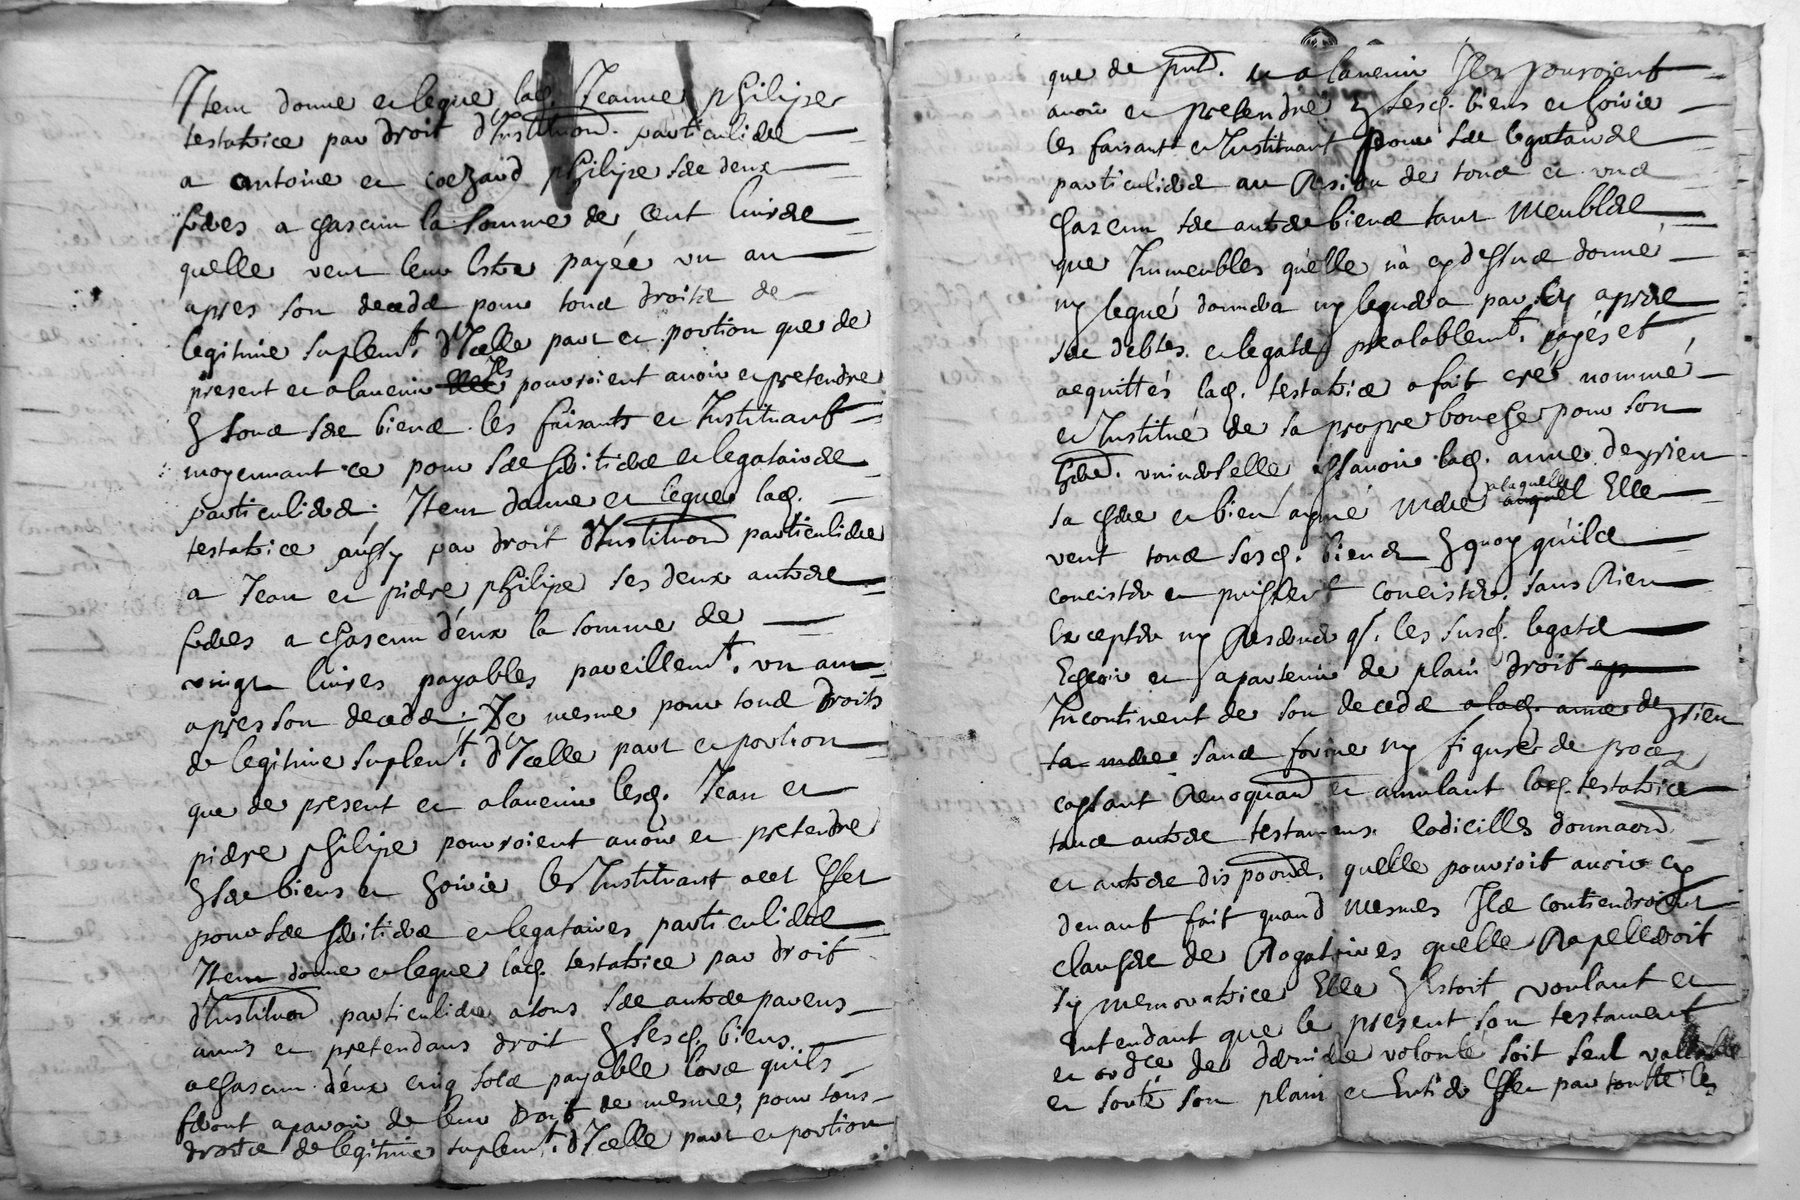 Item donne et legue lad. Jeanne philipe
testatrice par droit d'Institu͠on particuliere
a antoine et philipe ses deux
freres a chascun la somme de cent livres
quelle veut leur Estre payée un an
apres son decedz pour tous droits de
legitime suplemt. d'Icelle part et portion que de
present et alavenir Ils pourroient avoir et pretendre
sur tous ses biens les faisants et Instituant
moyennant ce pour ses heritiers et legataires
particuliers. Item donne et legue lad.
testatrice aussy par droit d'Institu͠on particuliere
a Jean et pierre philipe ses deux autres
freres a chascun d'eux la somme de
vingt livres payables pareillemt. un an
apres son decedz. De mesme pour tous droits
de legitime suplemt. d'Icelle part et portion
que de present et alavenir lesd. Jean et
pierre philipe pourroient avoir et pretendre
sur ses biens et hoirie les Instituant acet effet
pour ses heritiers et legataires particuliers
Item donne et legue lad. testatrice par droit
d'Institu͠on particuliere a tous ses autres parens
amis et pretendans droit sur sesd. biens
a chascun d'eux cinq sols payable lors quils
feront aparoir de leur droit de mesme pour tous
droits de legitime suplemt. d'Icelle part et portion
que de pnt. et alavenir Ils pourroient
avoir et pretendre sur sesd. biens et hoirie
les faisant et Instituant pour ses legataires
particuliers au Residu de tous et uns
chascun ses autres biens tant meubles
que Immeubles qu'elle n'a cy dessus donné
ny legué donnera ny leguera par cy apres
ses debtes et legats prealablemt. payés et
acquittés lad. testatrice a fait créé nommé
et Institué de sa propre bouche pour son
here. universelle assavoir lad. anne deyrieu
sa chere et bien aymé mere a laquelle Elle
veut tous sesd. biens quoy qu'ils
concistent et puissent concister sans Rien
Excepter ny Reserver les susd. legats
Echoir et apartenir de plain droit
Incontinent de son decedz a lad. anne deyrieu
sa mere sans forme ny figure de proces
cassant Revoquant et annulant lad. testatrice
tous autres testamens codicilles dona͠on
et autres dispoons. quelle pourroit avoir cy
devant fait quand mesmes Ils contiendroient
clauses de Rogatoires quelle Rapelleroit
sy memoratrice Elle Estoit voulant et
Entendant que le present son testament
et ordre de derniere volonté soit seul vallable
et sorte son plain et Entier effet par toutte les